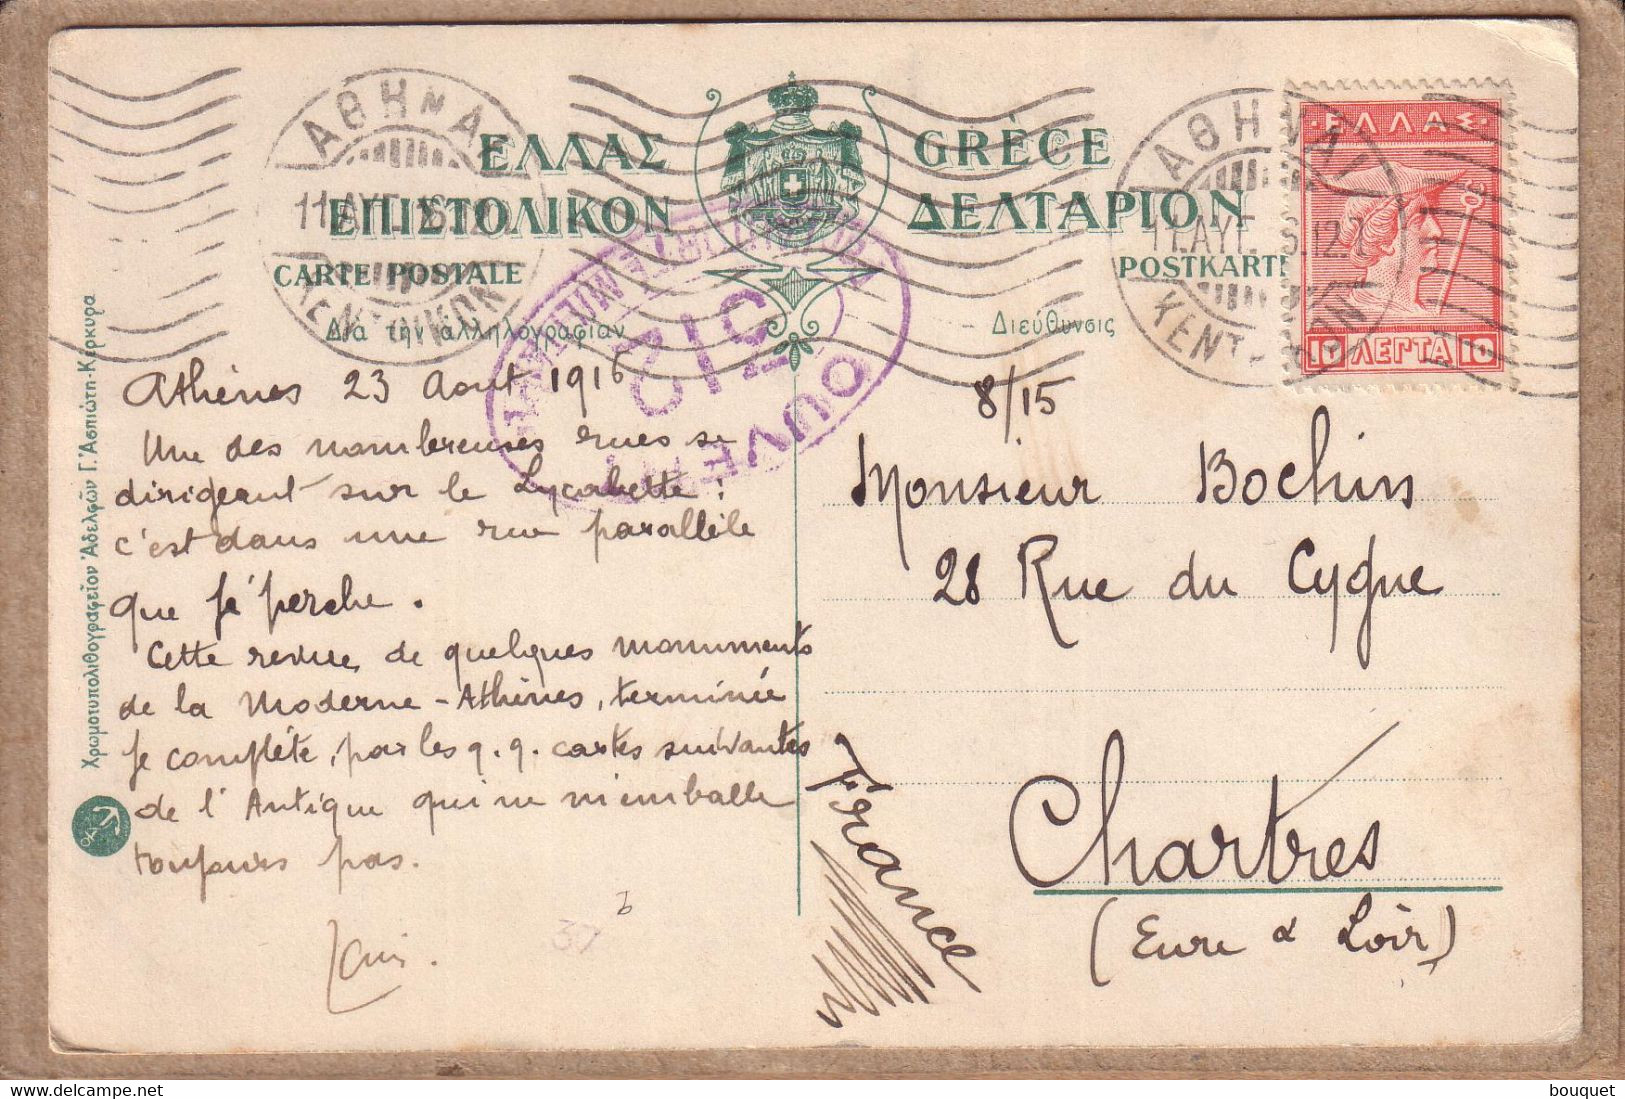 ΕΛΛΑΣ GRÈCE
ΕΠΙΣΤΟΛΙΚΟΝ ΔΕΛΤΑΡΙΟΝ
CARTE POSTALE POSTKARTE
Διὰ τὴν ἀλληλογραφίαν
Διεύθυνσις
ΑΘΗΝΑΙ
11 ΑΥΓ. 16.12
ΚΕΝΤΡΙΚΟΝ
ΑΘΗΝΑΙ
11.ΑΥΓ. 16.12
ΚΕΝΤΡΙΚΟΝ
ΕΛΛΑΣ
10 ΛΕΠΤΑ 10
OUVERT
AUTORITÉ MILITAIRE
512
Athènes 23 Aout 1916
Une des nombreuses rues se
dirigeant sur le Lycabette :
c'est dans une rue parallèle
que je perche.
Cette revue de quelques monuments
de la Moderne-Athènes, terminée
je complète, par les q.q. cartes suivantes
de l'Antique qui ne m'emballe
toujours pas.
37
8/15
Monsieur Bochin
28 Rue du Cygne
Chartres
(Eure & Loir)
France
Χρωμοτυπολιθογραφεῖον Ἀδελφῶν Γ. Ἀσπιώτη-Κέρκυρα
bouquet